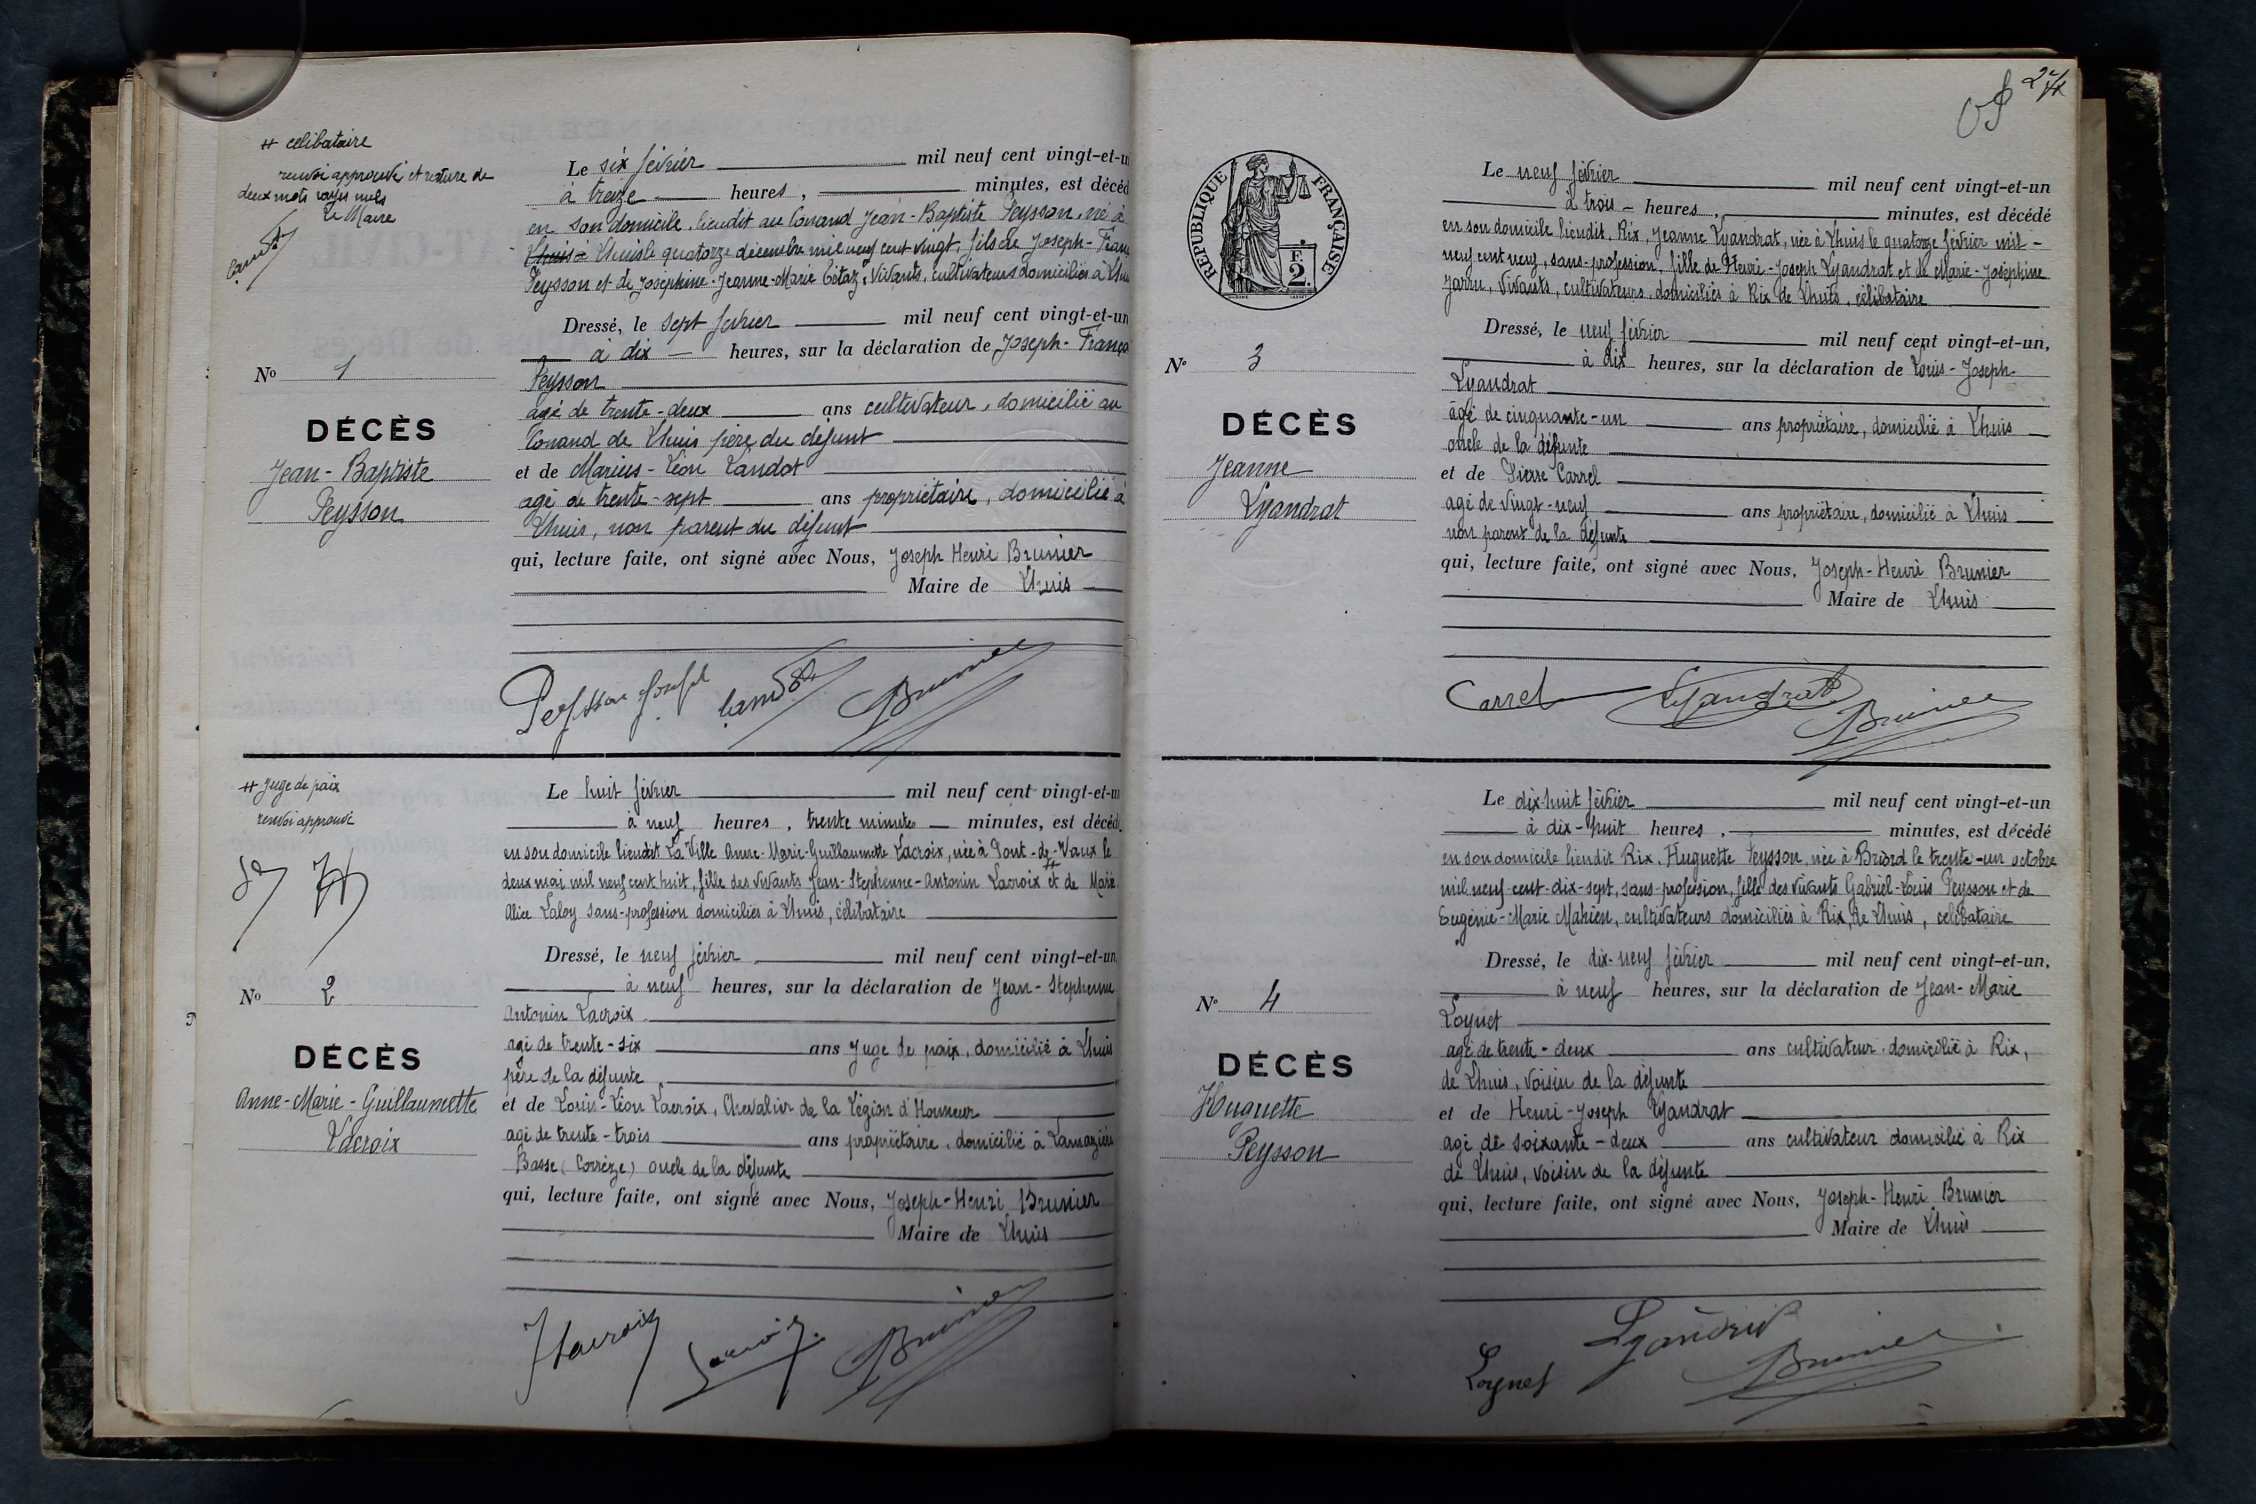 # célibataire
renvoi approuvé et rature de
deux mots rayés nuls
Le Maire
Le six février mil neuf cent vingt-et-u
à treize heures, minutes, est décéd
en son domicile, lieudit au Conand Jean-Baptiste Peysson, né à
Lhuis à Lhuis le quatorze décembre mil neuf cent vingt, fils de Joseph-Franç
Peysson et de Joséphine-Jeanne-Marie, vivants, cultivateurs domiciliés à Lhu
Dressé, le sept février mil neuf cent vingt-et-un
à dix heures, sur la déclaration de Joseph-Franço
Peysson
agé de trente-deux ans cultivateur, domicilié au
Conand de Lhuis père du défunt
et de Marius-Léon Landot
agé de trente-sept ans propriétaire, domicilié à
Lhuis, non parent du défunt
qui, lecture faite, ont signé avec Nous, Joseph Henri Brunier
Maire de Lhuis
No 1
DÉCÈS
Jean-Baptiste
Peysson
Peysson Joseph Landot Brunier
# Juge de paix
renvoi approuvé
Le huit février mil neuf cent vingt-et-u
à neuf heures, trente minutes minutes, est décéd
en son domicile lieudit La Ville Anne-Marie-Guillaumette Lacroix, née à Pont-de-Vaux le
deux mai mil neuf cent huit, fille des vivants Jean-Stephenne-Antonin Lacroix # et de Marie
Alice Laloy sans-profession domiciliés à Lhuis, célibataire
Dressé, le neuf février mil neuf cent vingt-et-un
à neuf heures, sur la déclaration de Jean-Stephenne
Antonin Lacroix
agé de trente-six ans Juge de paix, domicilié à Lhuis
père de la défunte
et de Louis-Léon Lacroix, Chevalier de la Légion d'Honneur
agé de trente-trois ans propriétaire, domicilié à Lamazière
Basse (Corrèze) oncle de la défunte
qui, lecture faite, ont signé avec Nous, Joseph-Henri Brunier
Maire de Lhuis
No 2
DÉCÈS
Anne-Marie-Guillaumette
Lacroix
Lacroix Lacroix Brunier
24
RÉPUBLIQUE FRANÇAISE
F.
2.
Le neuf février mil neuf cent vingt-et-un
à trois heures, minutes, est décédé
en son domicile lieudit, Rix, Jeanne Lyandrat, née à Lhuis le quatorze février mil-
neuf cent neuf, sans-profession, fille de Henri-Joseph Lyandrat et de Marie-Joséphine
Jarru, vivants, cultivateurs, domiciliés à Rix de Lhuis, célibataire
Dressé, le neuf février mil neuf cent vingt-et-un,
à dix heures, sur la déclaration de Louis-Joseph
Lyandrat
âgé de cinquante-un ans propriétaire, domicilié à Lhuis
oncle de la défunte
et de Pierre Carrel
agé de vingt-neuf ans propriétaire, domicilié à Lhuis
non parent de la défunte
qui, lecture faite, ont signé avec Nous, Joseph-Henri Brunier
Maire de Lhuis
No 3
DÉCÈS
Jeanne
Lyandrat
Carrel Lyandrat Brunier
Le dix-huit février mil neuf cent vingt-et-un
à dix-huit heures, minutes, est décédé
en son domicile lieudit Rix, Huguette Peysson, née à Briord le trente-un octobre
mil neuf cent-dix-sept, sans-profession, fille des vivants Gabriel-Louis Peysson et de
Eugénie-Marie Mahieu, cultivateurs domiciliés à Rix, de Lhuis, célibataire
Dressé, le dix-neuf février mil neuf cent vingt-et-un,
à neuf heures, sur la déclaration de Jean-Marie
Loynet
agé de trente-deux ans cultivateur, domicilié à Rix,
de Lhuis, voisin de la défunte
et de Henri-Joseph Lyandrat
agé de soixante-deux ans cultivateur domicilié à Rix
de Lhuis, voisin de la défunte
qui, lecture faite, ont signé avec Nous, Joseph-Henri Brunier
Maire de Lhuis
No 4
DÉCÈS
Huguette
Peysson
Loynet Lyandrat Brunier